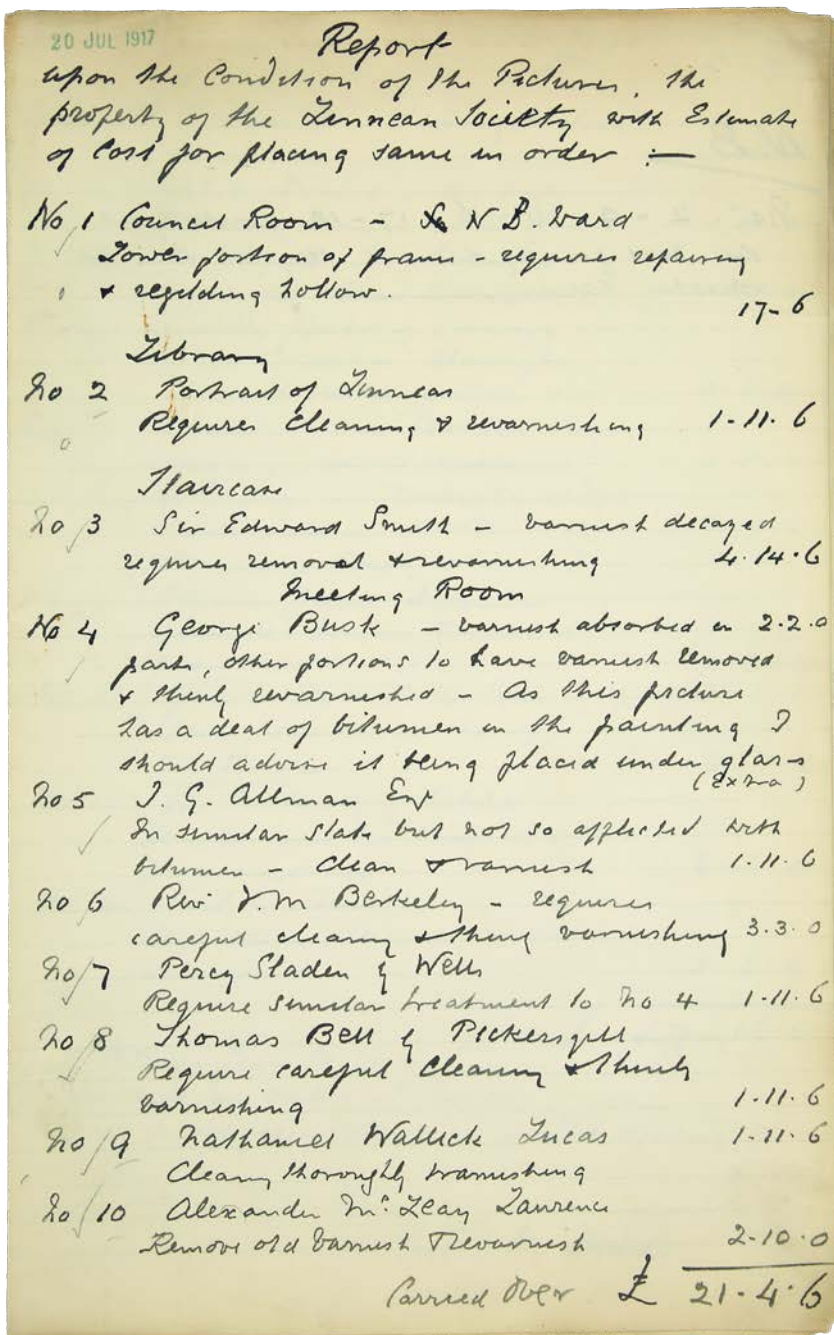 20 JUL 1917
Report
upon the Condition of the Pictures, the
property of the Linnean Society with Estimate
of Cost for placing same in order :—
No 1 Council Room - N B. Ward
Lower portion of frame - requires repairing
& regilding hollow.
17-6
Library
No 2 Portrait of Linneas
Requires Cleaning & revarnishing 1-11.6
Staircase
No 3 Sir Edward Smith - varnish decayed
requires removal & revarnishing 4.14.6
Meeting Room
No 4 George Busk - varnish absorbed in 2.2.0
parts, other portions to have varnish removed
& thinly revarnished - As this picture
has a deal of bitumen in the painting I
should advise it being placed under glass
(Extra)
No 5 J. G. Allman Esqr
In similar state but not so afflicted with
bitumen - clean & varnish 1.11.6
No 6 Rev: J. M Berkeley - requires
careful cleaning & thinly varnishing 3.3.0
No 7 Percy Sladen by Wells
Require similar treatment to No 4 1.11.6
No 8 Thomas Bell by Pickersgill
Require careful Cleaning & thinly
varnishing 1.11.6
No 9 Nathaniel Wallick Lucas 1-11.6
Cleaning thoroughly & varnishing
No 10 Alexander Mc. Leay Lawrence
Remove old Varnish & Revarnish 2-10.0
Carried Over £ 21.4.6